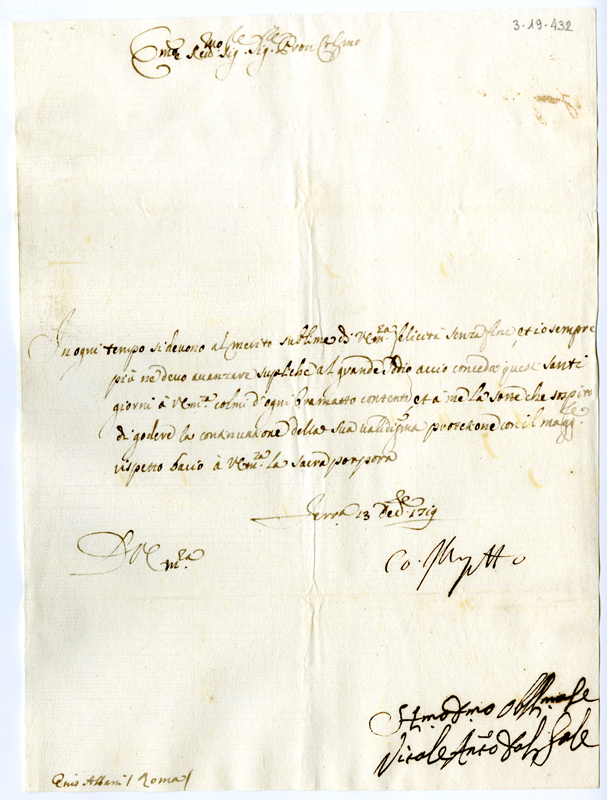 3-19-432
Em.mo Rev.mo Sig. Sig. Pron Col.mo
In ogni tempo si devono al merito sublime di V Em.za felicità senza fine, et io sempre
più ne devo avanzare supliche al grande Iddio acciò conceda questi santi
giorni à V Em.za colmi d'ogni bramatto contento, et à me la sorte che sospiro
di godere la continuazione della sua validissima protezione con il magg.re
rispetto bacio à V Em.za la sacra porpora
13 Dec.re 1719
D V Em.za
Co.
Vitale Ant.o dal Sale
Em.o Albani / Roma /